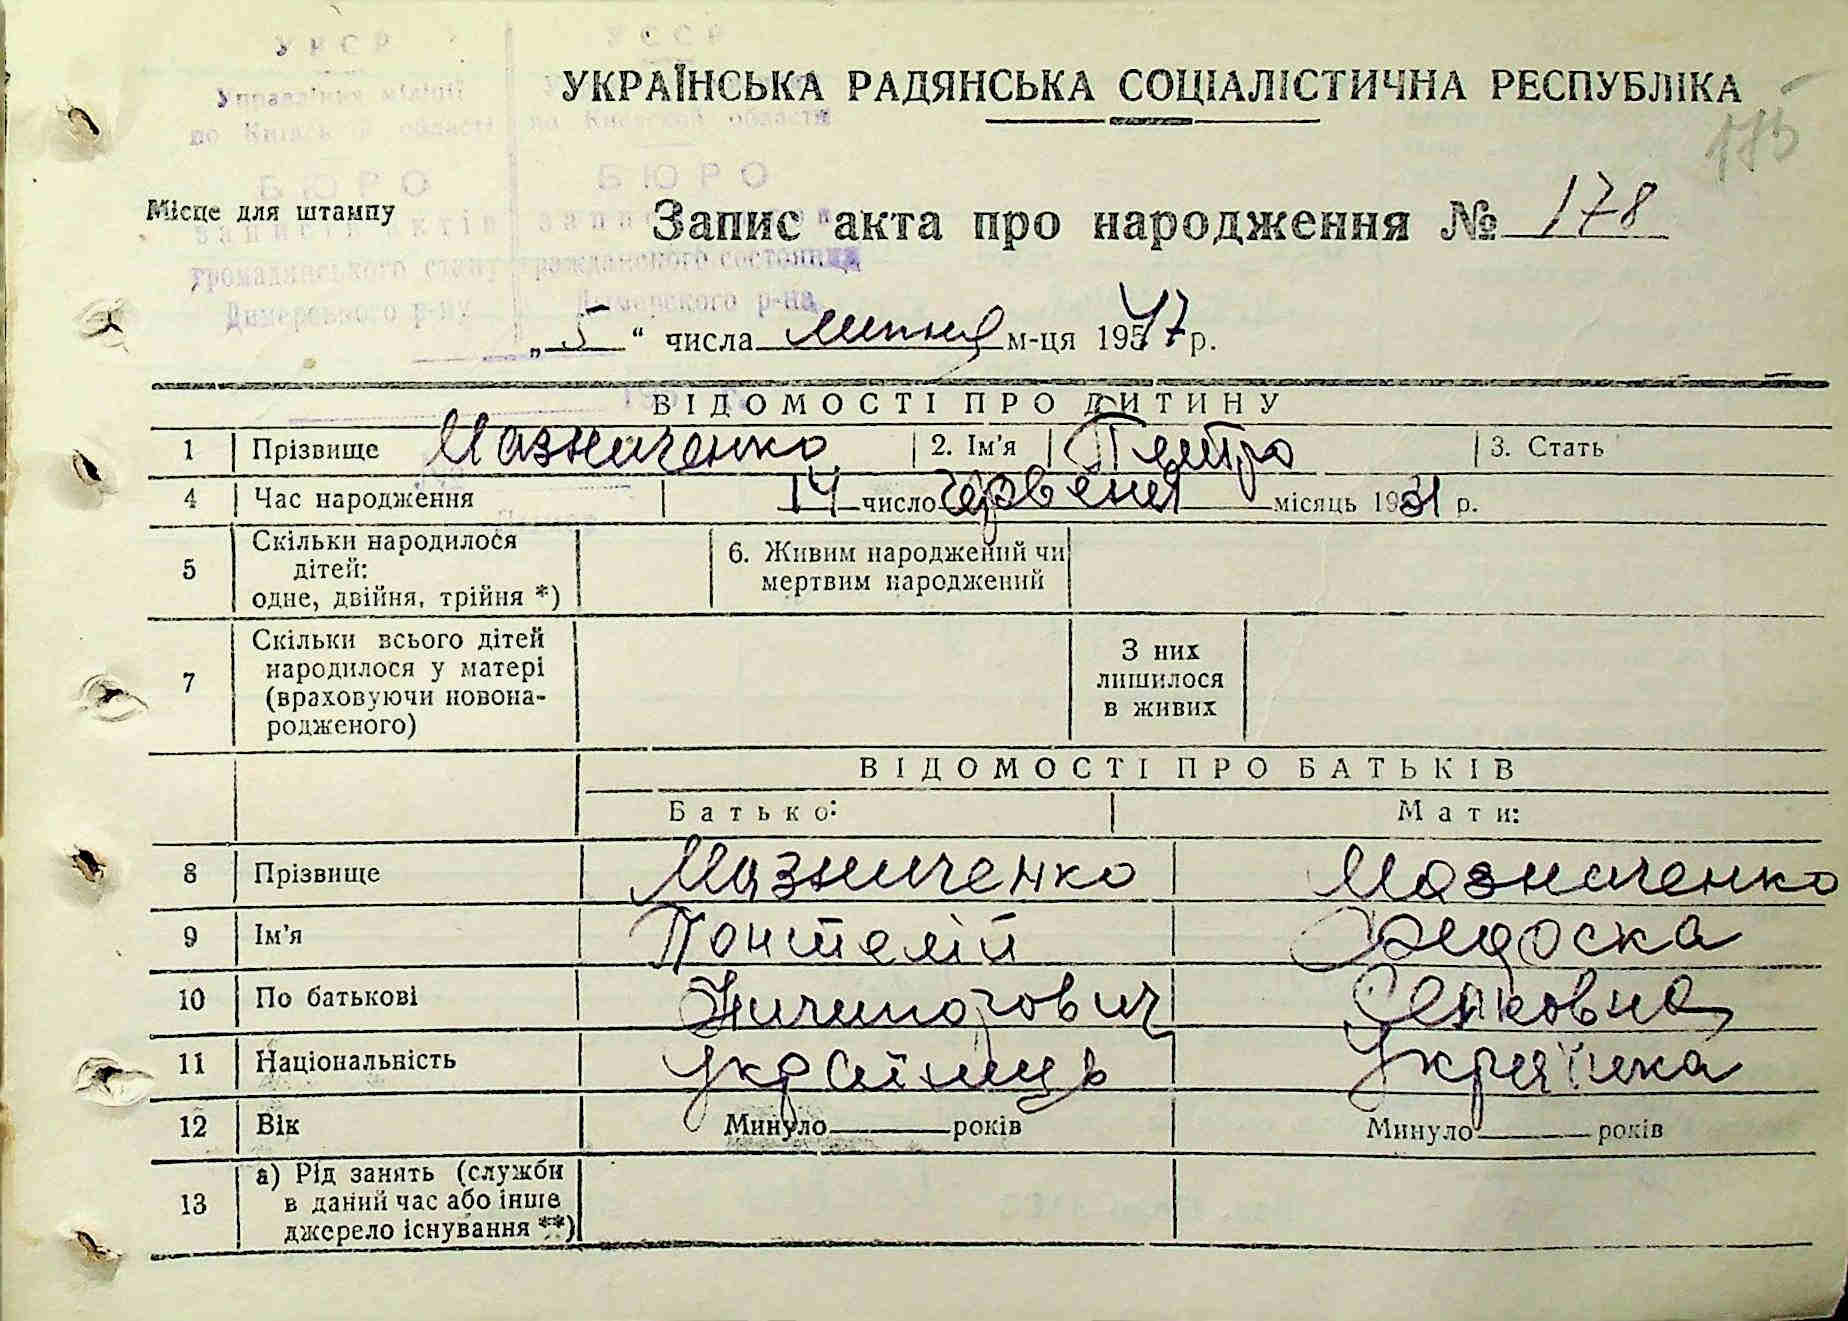 УРСР УССР
Управління міліції
по Київській області по Киевской области
УКРАЇНСЬКА РАДЯНСЬКА СОЦІАЛІСТИЧНА РЕСПУБЛІКА
БЮРО БЮРО
Місце для штампу
записів актів
Запис акта про народження № 178
громадянського стану гражданского состояния
Димерського р-ну Димерского р-на
„ 5 “ числа липня м-ця 1947 р.
ВІДОМОСТІ ПРО ДИТИНУ
1 Прізвище Мазниченко 2. Ім'я Петро 3. Стать
4 Час народження 14 число червеня місяць 1931 р.
5 Скільки народилося
дітей:
одне, двійня, трійня *)
6. Живим народжений чи
мертвим народжений
7 Скільки всього дітей
народилося у матері
(враховуючи новона-
родженого)
З них
лишилося
в живих
ВІДОМОСТІ ПРО БАТЬКІВ
Батько: Мати:
8 Прізвище Мазниченко Мазниченко
9 Ім'я Понтелій Федоска
10 По батькові Ничипорович
11 Національність Українець Українка
12 Вік Минуло років Минуло років
13 а) Рід занять (служби
в даний час або інше
джерело існування **)